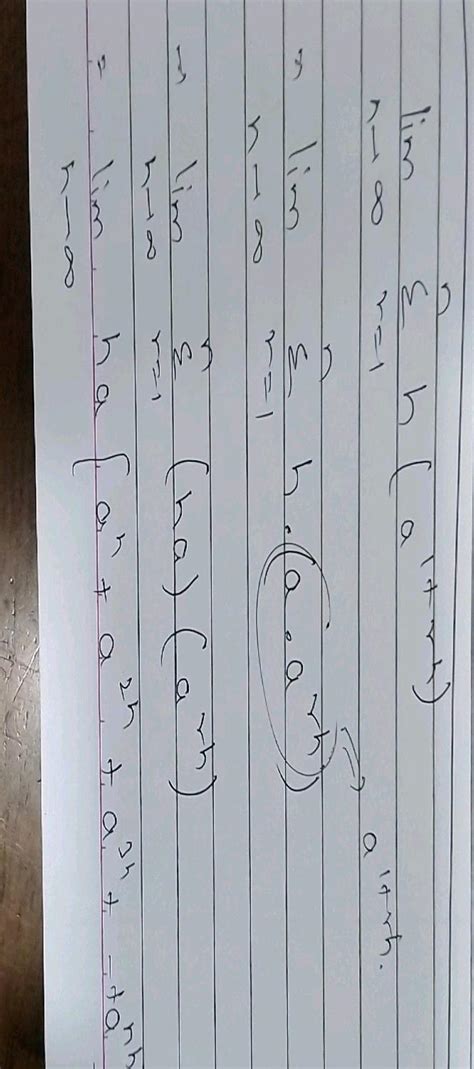 lim n→∞ n Σ r=1 h (a^{1+rh})
= lim n→∞ n Σ r=1 h · (a · a^{rh}) → a^{1+rh}.
= lim n→∞ n Σ r=1 (ha) (a^{rh})
= lim n→∞ ha [a^h + a^{2h} + a^{3h} + – + a^{nh}